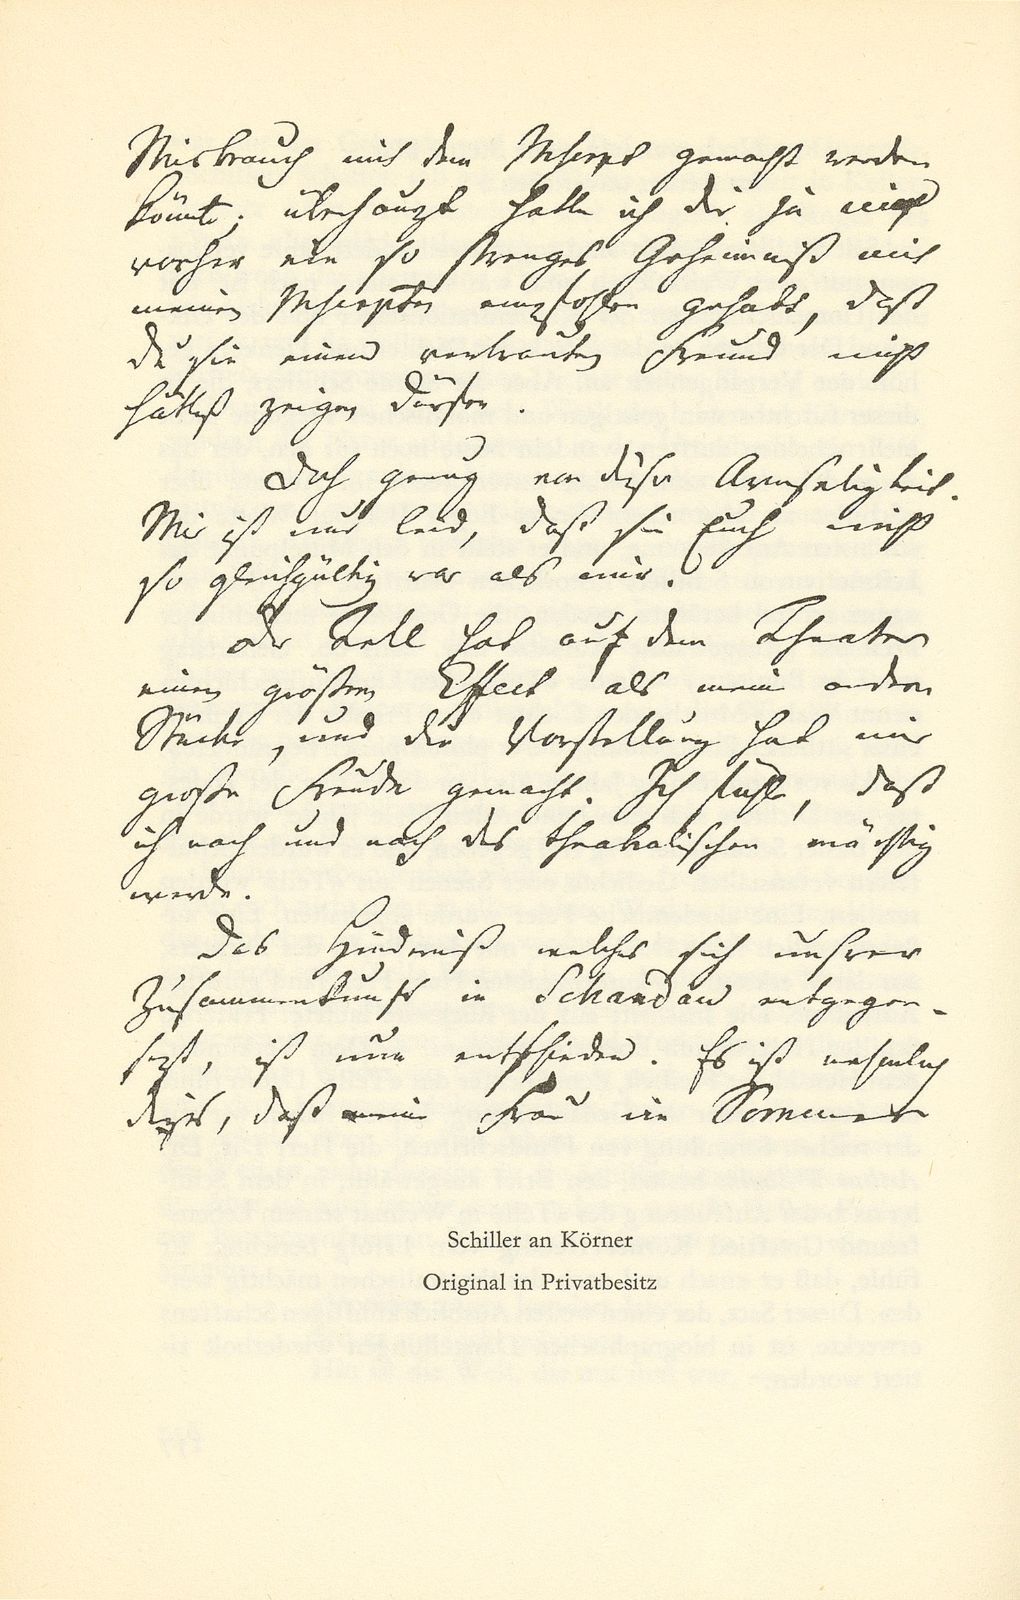 Misbrauch mit dem Mscrpt gemacht werden
könnte; überhaupt hatte ich dir ja nie
vorher ein so strenges Geheimniß mit
meinen Mscrpten empfohlen gehabt, daß
du sie einem vertrauten Freund nicht
hättest zeigen dürfen.
Doch genug von dieser Armseligkeit.
Mir ist nur leid, daß sie Euch nicht
so gleichgültig war als mir.
Der Tell hat auf dem Theater
einen größern Effect als meine andern
Stücke, und die Vorstellung hat mir
große Freude gemacht. Ich fühle, daß
ich nach und nach des theatralischen mächtig
werde.
Das Hinderniß welches sich unsrer
Zusammenkunft in Schandau entgegen-
sezt, ist nun entschieden. Es ist nehmlich
dieses, daß meine Frau im Sommer
Schiller an Körner
Original in Privatbesitz